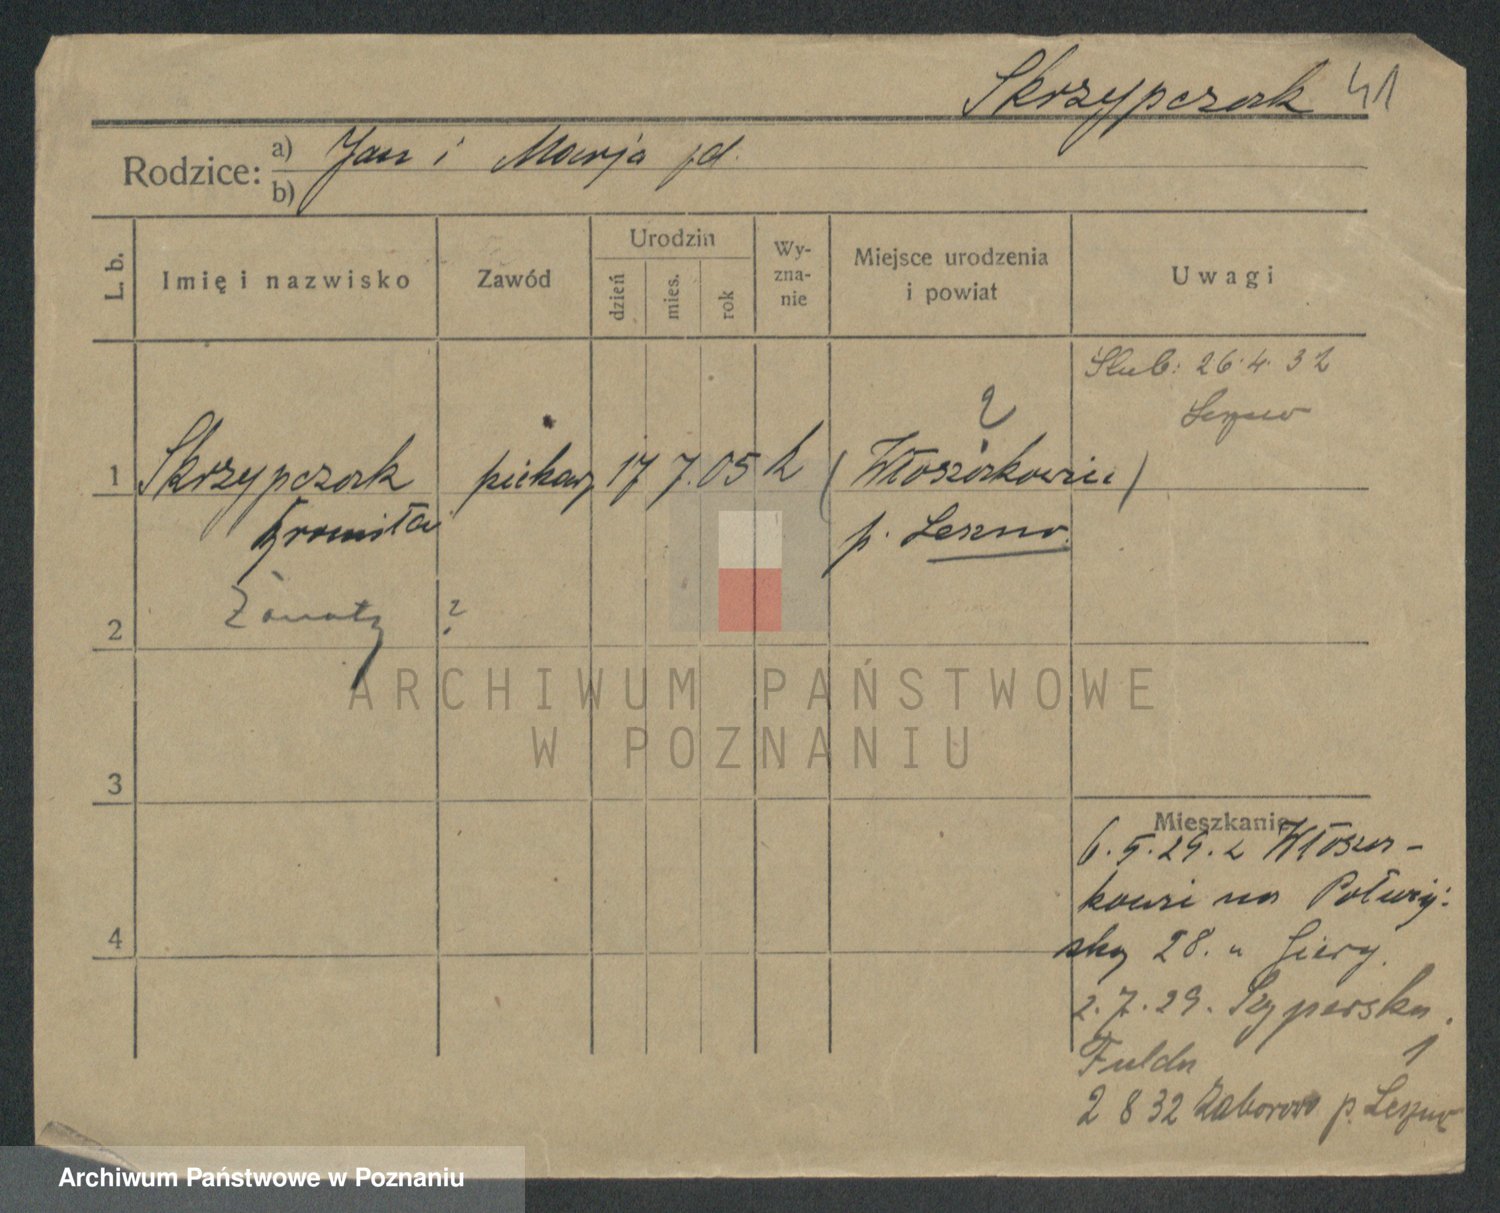 Skrzypczak 41
Rodzice: a) Jan i Marja jd.
b)
L. b. Imię i nazwisko Zawód Urodzin dzień mies. rok Wyznanie Miejsce urodzenia i powiat Uwagi
Ślub: 26.4.32
Leszno
1 Skrzypczak piekarz 17 7.05 k (Włoszakowice)
Bronisław p. Leszno.
2 Żonaty ?
3
Mieszkanie
6.5.29. z Włosza-
kowic na Półwiej-
ską 28. u Giery.
4
2.7.29. Szyperska
Fulda 1
2 8 32 Zaborowo p. Leszno
ARCHIWUM PAŃSTWOWE
W POZNANIU
Archiwum Państwowe w Poznaniu